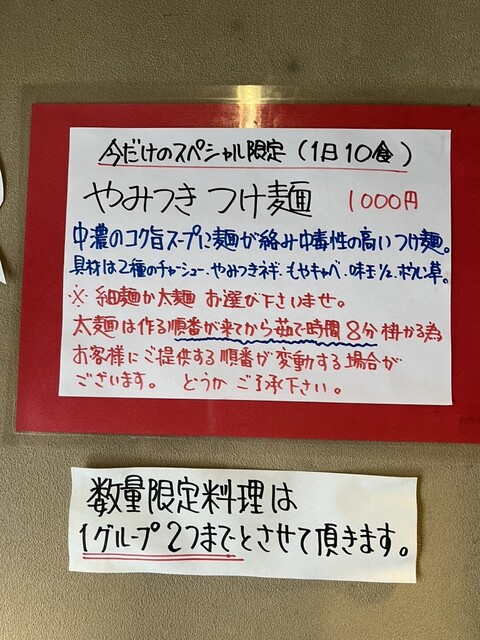 今だけのスペシャル限定(1日10食)
やみつき つけ麺 1000円
中濃のコク旨スープに麺が絡み中毒性の高いつけ麺。
具材は2種のチャーシュー、やみつきネギ、もやキャベ、味玉½、ホウレン草。
※ 細麺か太麺 お選び下さいませ。
太麺は作る順番が来てから茹で時間8分掛かる為
お客様にご提供する順番が変動する場合が
ございます。 どうか ご了承下さい。
数量限定料理は
1グループ2つまでとさせて頂きます。